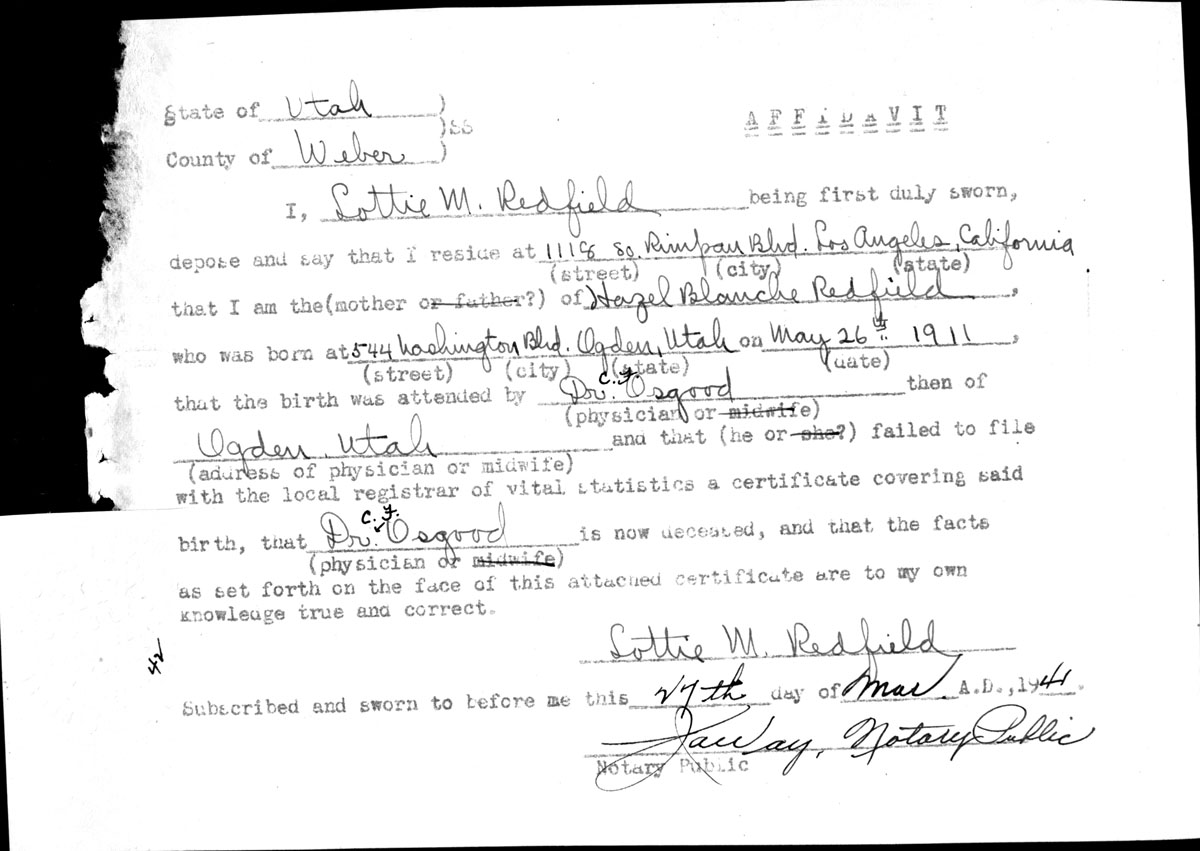 State of Utah )
)SS
AFFIDAVIT
County of Weber )
I, Lottie M. Redfield being first duly sworn,
depose and say that I reside at 1118 So. Rimpau Blvd. Los Angeles, California
(street) (city) (state)
that I am the(mother or father?) of Hazel Blanche Redfield,
who was born at 544 Washington Blvd. Ogden, Utah on May 26th 1911,
(street) (city) (state) (date)
that the birth was attended by Dr. C. F. Osgood then of
(physician or midwife)
Ogden, Utah and that (he or she?) failed to file
(address of physician or midwife)
with the local registrar of vital statistics a certificate covering said
birth, that Dr. C. F. Osgood is now deceased, and that the facts
(physician or midwife)
as set forth on the face of this attached certificate are to my own
knowledge true and correct.
Lottie M. Redfield
42
Subscribed and sworn to before me this 27th day of Mar A.D.,1941.
Notary Public
Notary Public